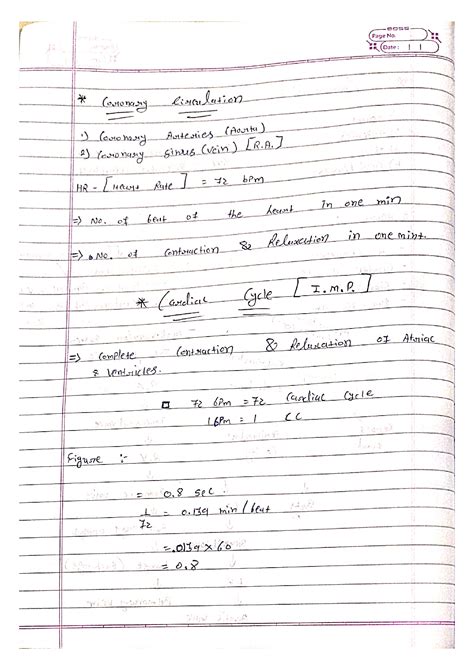 Page No.
Date: | |
* Coronary Circulation
1) Coronary Arteries (Aorta)
2) Coronary sinus (vein) [R.A.]
HR - [Heart Rate] = 72 bpm
=> No. of beat of the heart in one min
=> No. of contraction & Relaxection in one mint.
* Cardiac Cycle [I.M.P.]
=> Complete Contraction & Relaxation of Atriac
& Ventricles.
72 bpm = 72 Cardiac Cycle
1 bpm = 1 CC
Figure :-
= 0.8 sec.
1/72 = 0.139 min / beat
= .0139 x 60
= 0.8